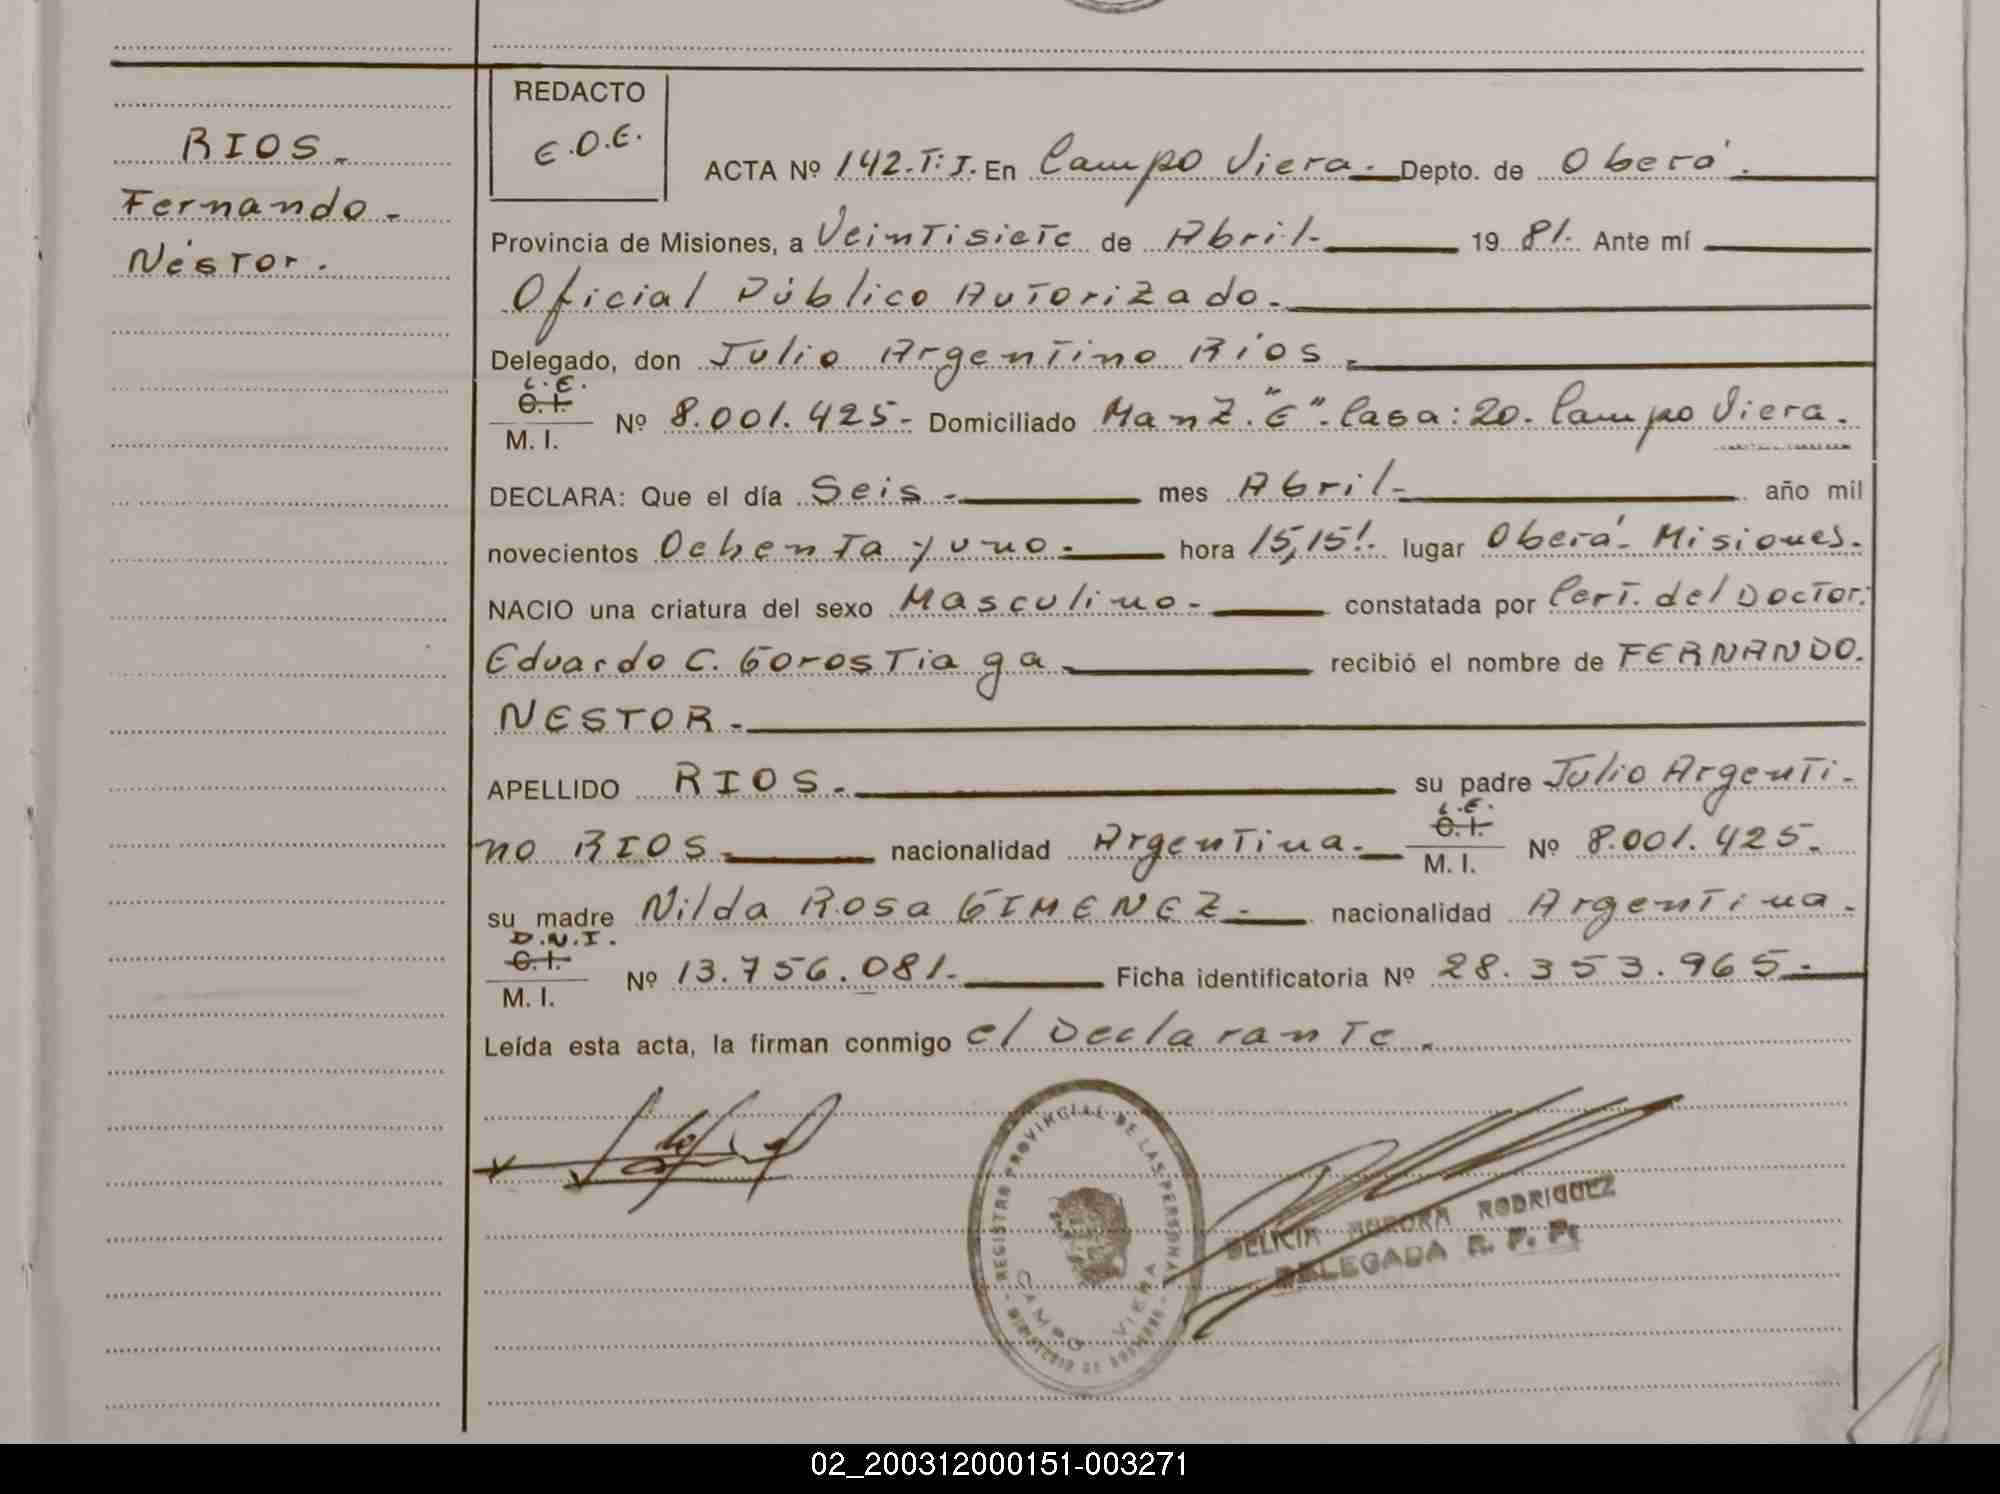 RIOS.
Fernando.
Néstor.
REDACTO
E.O.E.
ACTA Nº 142.T:I. En Campo Viera. Depto. de Oberá.
Provincia de Misiones, a Veintisiete de Abril. 1981. Ante mí
Oficial Público Autorizado.
Delegado, don Julio Argentino Ríos.
L.E.
C.I.
M.I. Nº 8.001.425- Domiciliado Manz. "E". Casa: 20. Campo Viera.
DECLARA: Que el día Seis. mes Abril. año mil
novecientos Ochenta y uno. hora 15,15!. lugar Oberá. Misiones.
NACIO una criatura del sexo Masculino. constatada por Cert. del Doctor:
Eduardo C. Gorostiaga recibió el nombre de FERNANDO.
NESTOR.
APELLIDO RIOS. su padre Julio Argenti-
no RIOS. nacionalidad Argentina.
L.E.
C.I.
M.I. Nº 8.001.425.
su madre Nilda Rosa GIMENEZ. nacionalidad Argentina.
D.N.I.
C.I.
M.I. Nº 13.756.081. Ficha identificatoria Nº 28.353.965.
Leída esta acta, la firman conmigo el Declarante.
REGISTRO PROVINCIAL DE LAS PERSONAS
CAMPO VIERA
MINISTERIO DE GOBIERNO
DELICIA AURORA RODRIGUEZ
DELEGADA R. P. P.
02_200312000151-003271